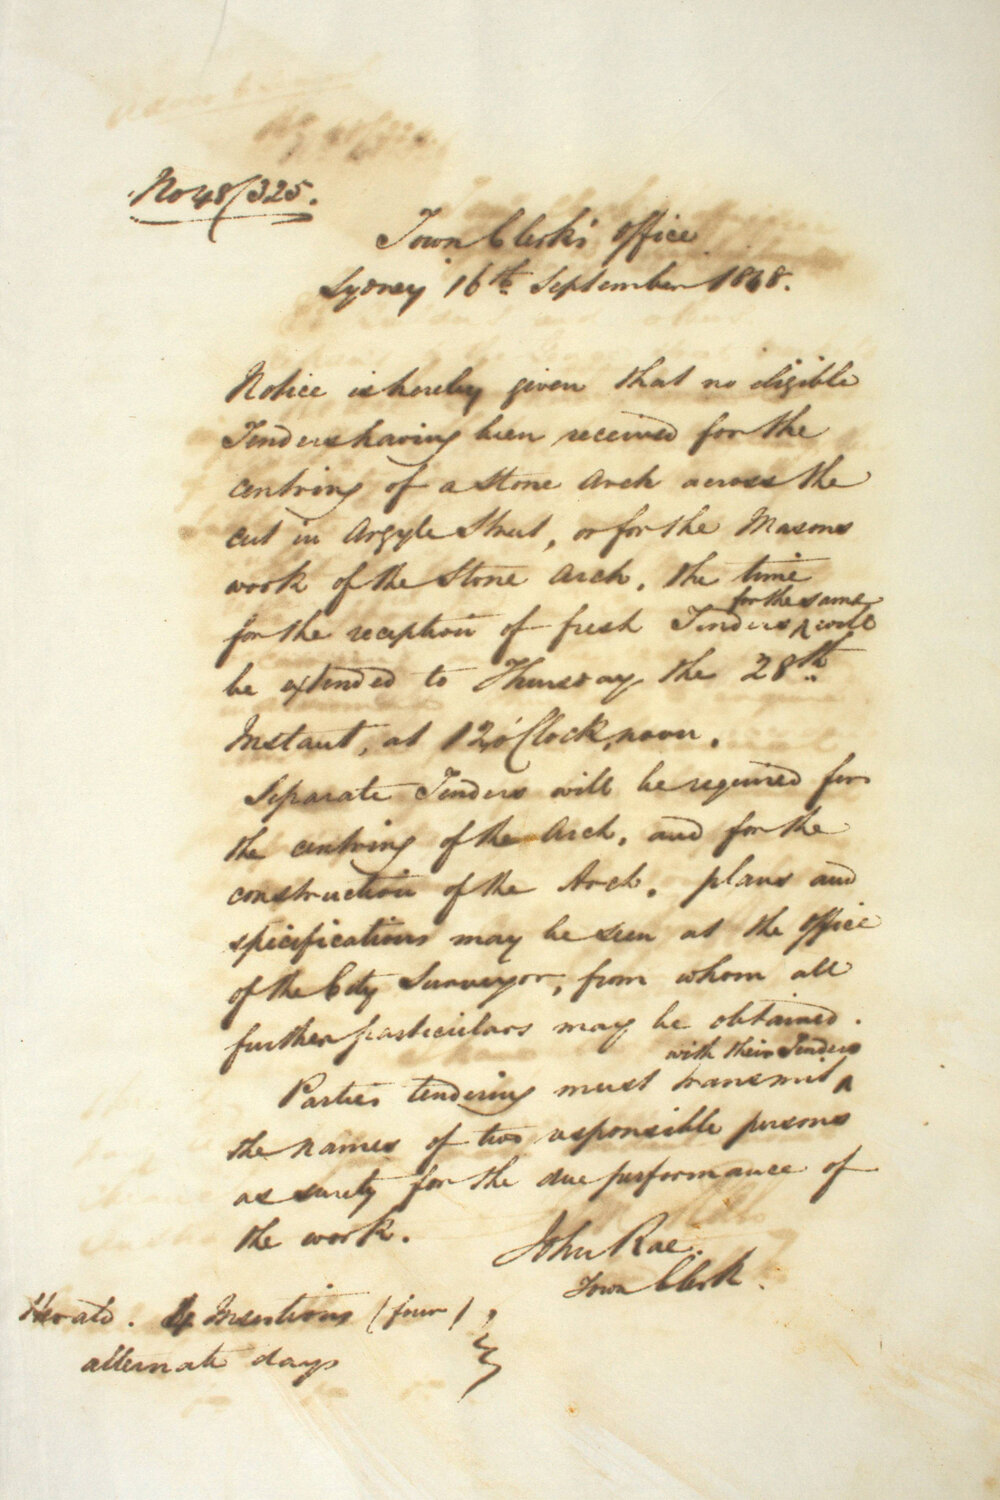 No 48/325.
Town Clerk's Office
Sydney 16th September 1848.
Notice is hereby given that no eligible
Tenders having been received for the
centring of a Stone Arch across the
cut in Argyle Street, or for the Masons
work of the Stone Arch, the time
for the same
for the reception of fresh Tenders ^ will
be extended to Thursday the 28th
Instant, at 12 o'Clock, noon.
Separate Tenders will be required for
the centring of the Arch, and for the
construction of the Arch. plans and
specifications may be seen at the Office
of the City Surveyor, from whom all
further particulars may be obtained.
with their Tenders
Parties tendering must transmit ^
the names of two responsible persons
as surety for the due performance of
the work.
John Rae.
Town Clerk.
Herald. 4 Insertions (four),
alternate days